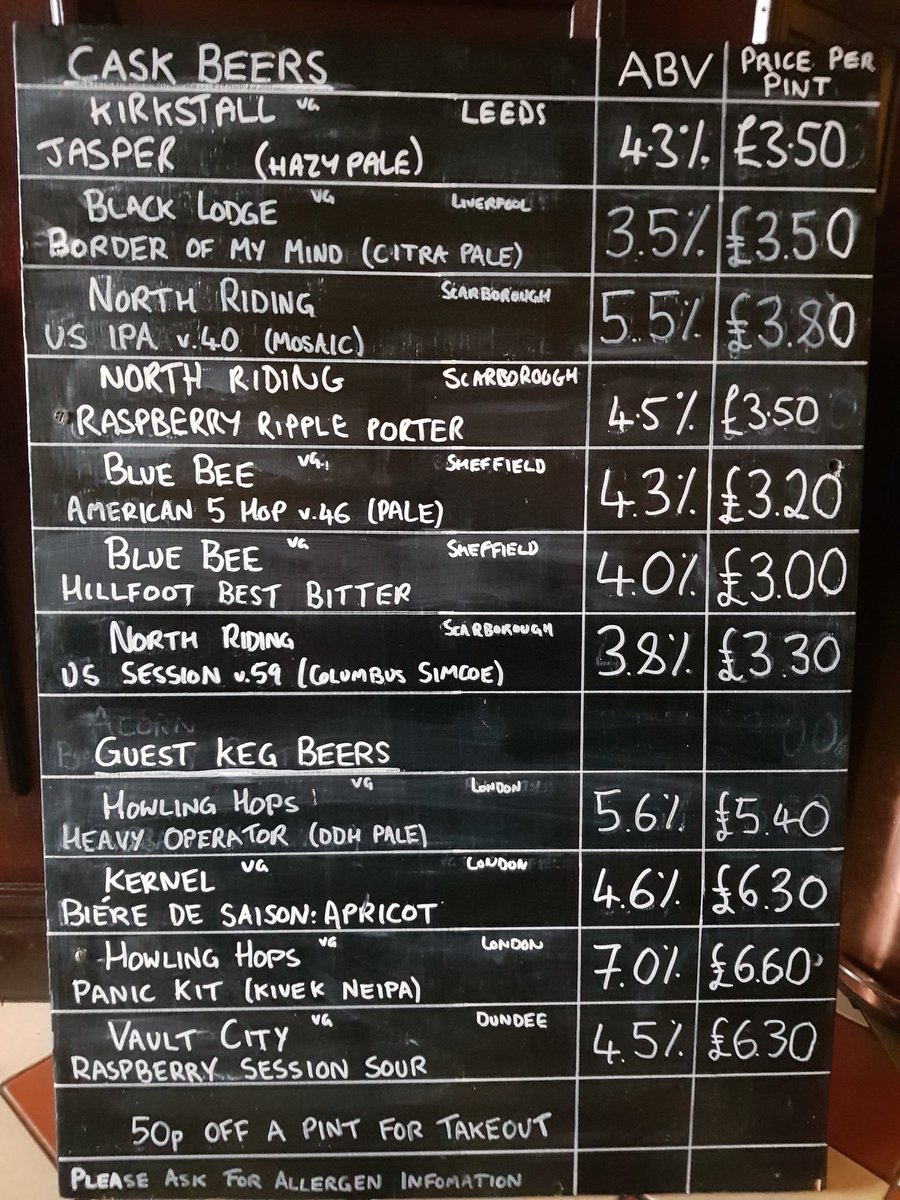 CASK BEERS ABV PRICE PER PINT
KIRKSTALL VG LEEDS
JASPER (HAZY PALE) 4.3% £3.50
BLACK LODGE VG LIVERPOOL
BORDER OF MY MIND (CITRA PALE) 3.5% £3.50
NORTH RIDING SCARBOROUGH
US IPA v.40 (MOSAIC) 5.5% £3.80
NORTH RIDING SCARBOROUGH
RASPBERRY RIPPLE PORTER 4.5% £3.50
BLUE BEE VG. SHEFFIELD
AMERICAN 5 HOP v.46 (PALE) 4.3% £3.20
BLUE BEE VG SHEFFIELD
HILLFOOT BEST BITTER 4.0% £3.00
NORTH RIDING SCARBOROUGH
US SESSION v.59 (COLUMBUS SIMCOE) 3.8% £3.30
ACORN
GUEST KEG BEERS
HOWLING HOPS VG LONDON
HEAVY OPERATOR (DDH PALE) 5.6% £5.40
KERNEL VG LONDON
BIÉRE DE SAISON: APRICOT 4.6% £6.30
HOWLING HOPS VG LONDON
PANIC KIT (KIVEK NEIPA) 7.0% £6.60
VAULT CITY VG DUNDEE
RASPBERRY SESSION SOUR 4.5% £6.30
50p OFF A PINT FOR TAKEOUT
PLEASE ASK FOR ALLERGEN INFOMATION